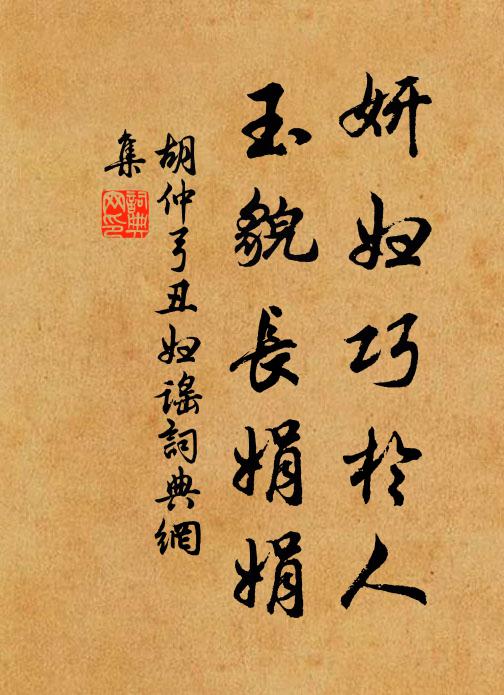 妍妇巧於人
玉貌長娟娟
胡仲弓丑妇謠詞典網
集
詞典网印